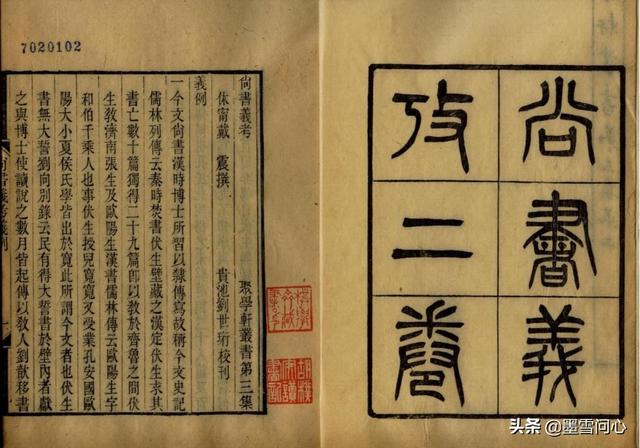 尚書義
攷二卷
7020102
尚書義考 聚學軒叢書第三集
休甯戴 震撰 貴池劉世珩校刊
義例
一今文尚書漢時博士所習以隸傳寫故稱今文史記
儒林列傳云秦時焚書伏生壁藏之漢定伏生求其
書亡數十篇獨得二十九篇卽以敎於齊魯之間伏
生敎濟南張生及歐陽生漢書儒林傳云歐陽生字
和伯千乘人也事伏生授兒寬寬又受業孔安國歐
陽大小夏侯氏學皆出於寬此所謂今文者也伏生
書無大誓劉向別錄云民有得大誓書於壁內者獻
之與博士使讀說之數月皆起傳以敎人劉歆移書
尚書義考義例
一
头条 @墨雪问心